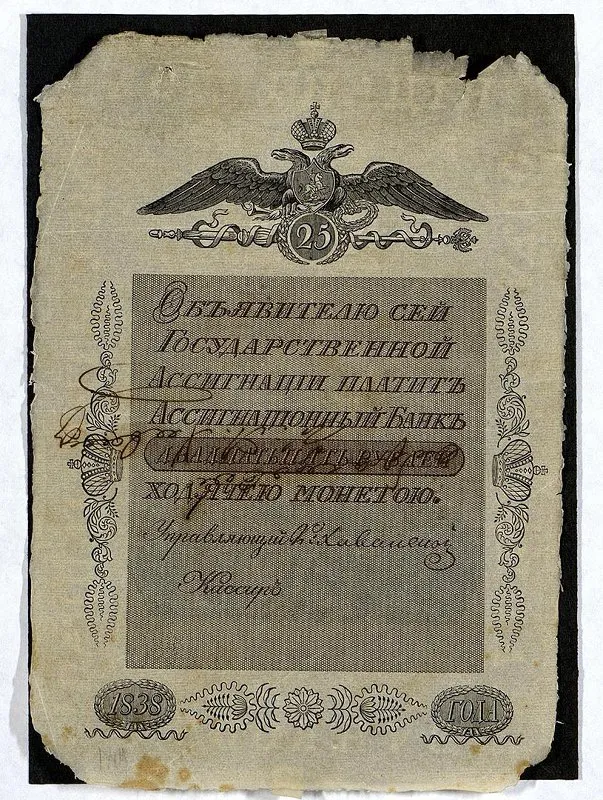 25
Объявителю сей
Государственной
Ассигнаціи платитъ
Ассигнаціонный Банкъ
двадцать пять рублей
ходячею монетою.
Управляющій
Кассиръ
1838 года